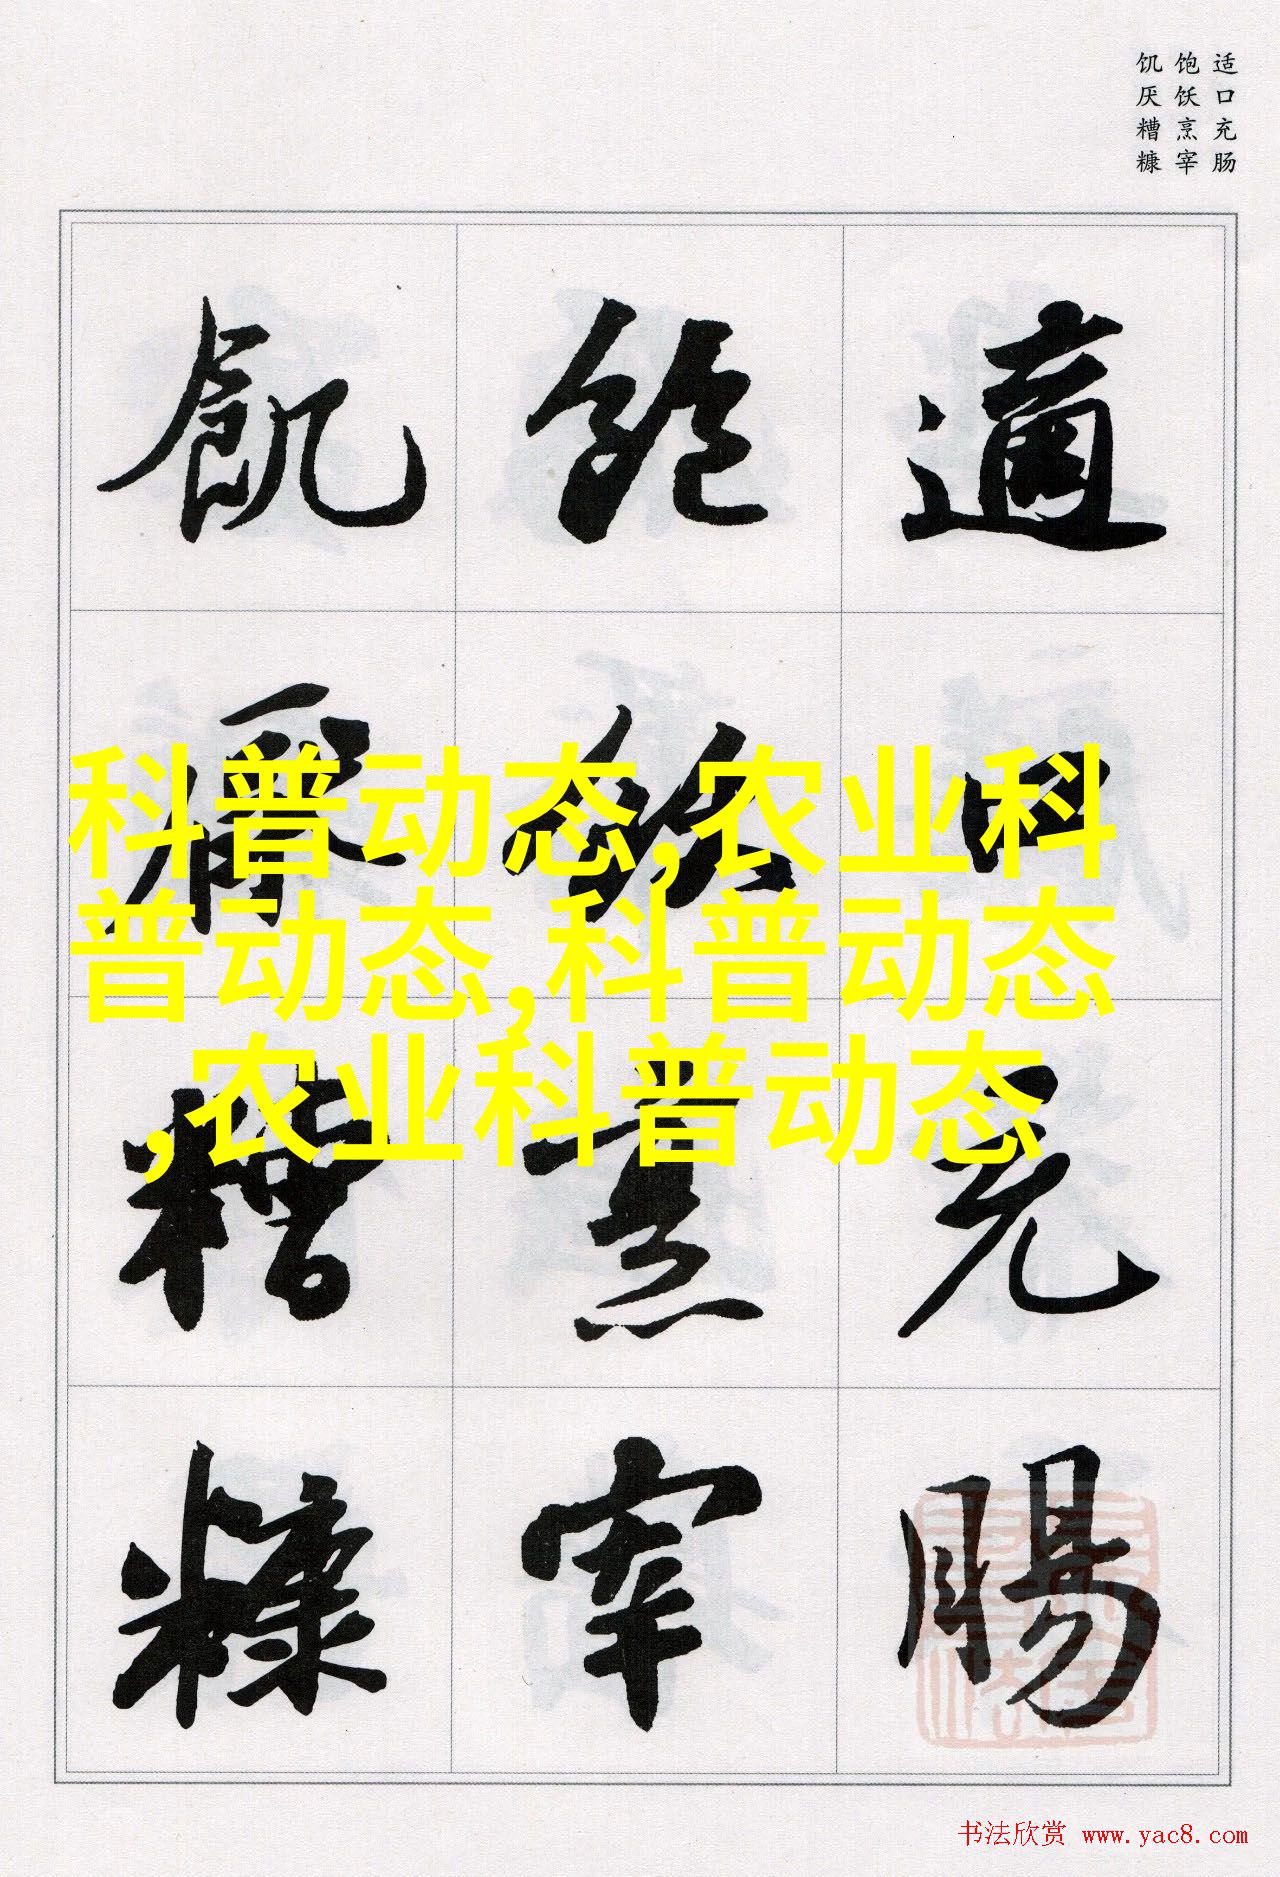 适口充肠
饱饫烹宰
饥厌糟糠
適口充腸
飽飫烹宰
飢厭糟糠
科普动态,农业科
普动态,科普动态
,农业科普动态
书法欣赏 www.yac8.com